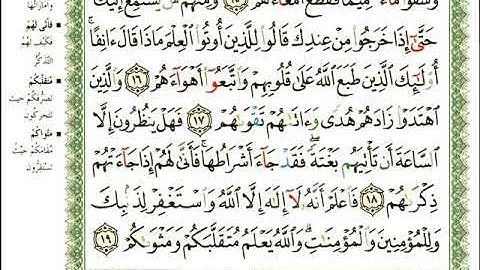 وَسُقُوا۟ مَآءً حَمِيمًا فَقَطَّعَ أَمْعَآءَهُمْ ١٥ وَمِنْهُم مَّن يَسْتَمِعُ إِلَيْكَ
حَتَّىٰٓ إِذَا خَرَجُوا۟ مِنْ عِندِكَ قَالُوا۟ لِلَّذِينَ أُوتُوا۟ ٱلْعِلْمَ مَاذَا قَالَ ءَانِفًا ۚ
أُو۟لَٰٓئِكَ ٱلَّذِينَ طَبَعَ ٱللَّهُ عَلَىٰ قُلُوبِهِمْ وَٱتَّبَعُوٓا۟ أَهْوَآءَهُمْ ١٦ وَٱلَّذِينَ
ٱهْتَدَوْا۟ زَادَهُمْ هُدًى وَءَاتَىٰهُمْ تَقْوَىٰهُمْ ١٧ فَهَلْ يَنظُرُونَ إِلَّا
ٱلسَّاعَةَ أَن تَأْتِيَهُم بَغْتَةً ۖ فَقَدْ جَآءَ أَشْرَاطُهَا ۚ فَأَنَّىٰ لَهُمْ إِذَا جَآءَتْهُمْ
ذِكْرَىٰهُمْ ١٨ فَٱعْلَمْ أَنَّهُۥ لَآ إِلَٰهَ إِلَّا ٱللَّهُ وَٱسْتَغْفِرْ لِذَنۢبِكَ
وَلِلْمُؤْمِنِينَ وَٱلْمُؤْمِنَٰتِ ۗ وَٱللَّهُ يَعْلَمُ مُتَقَلَّبَكُمْ وَمَثْوَىٰكُمْ ١٩
فَأَنَّى لَهُمْ
فَكَيْفَ لَهُمْ
التَّذَكُّرُ
مُتَقَلَّبَكُمْ
مُتَصَرَّفَكُمْ حَيْثُ
تَتَحَرَّكُونَ
مَثْوَاكُمْ
مُقَامَكُمْ حَيْثُ
تَسْتَقِرُّونَ